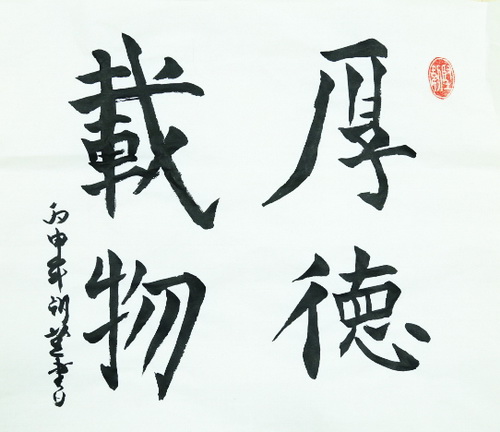 厚德
載物
丙申年